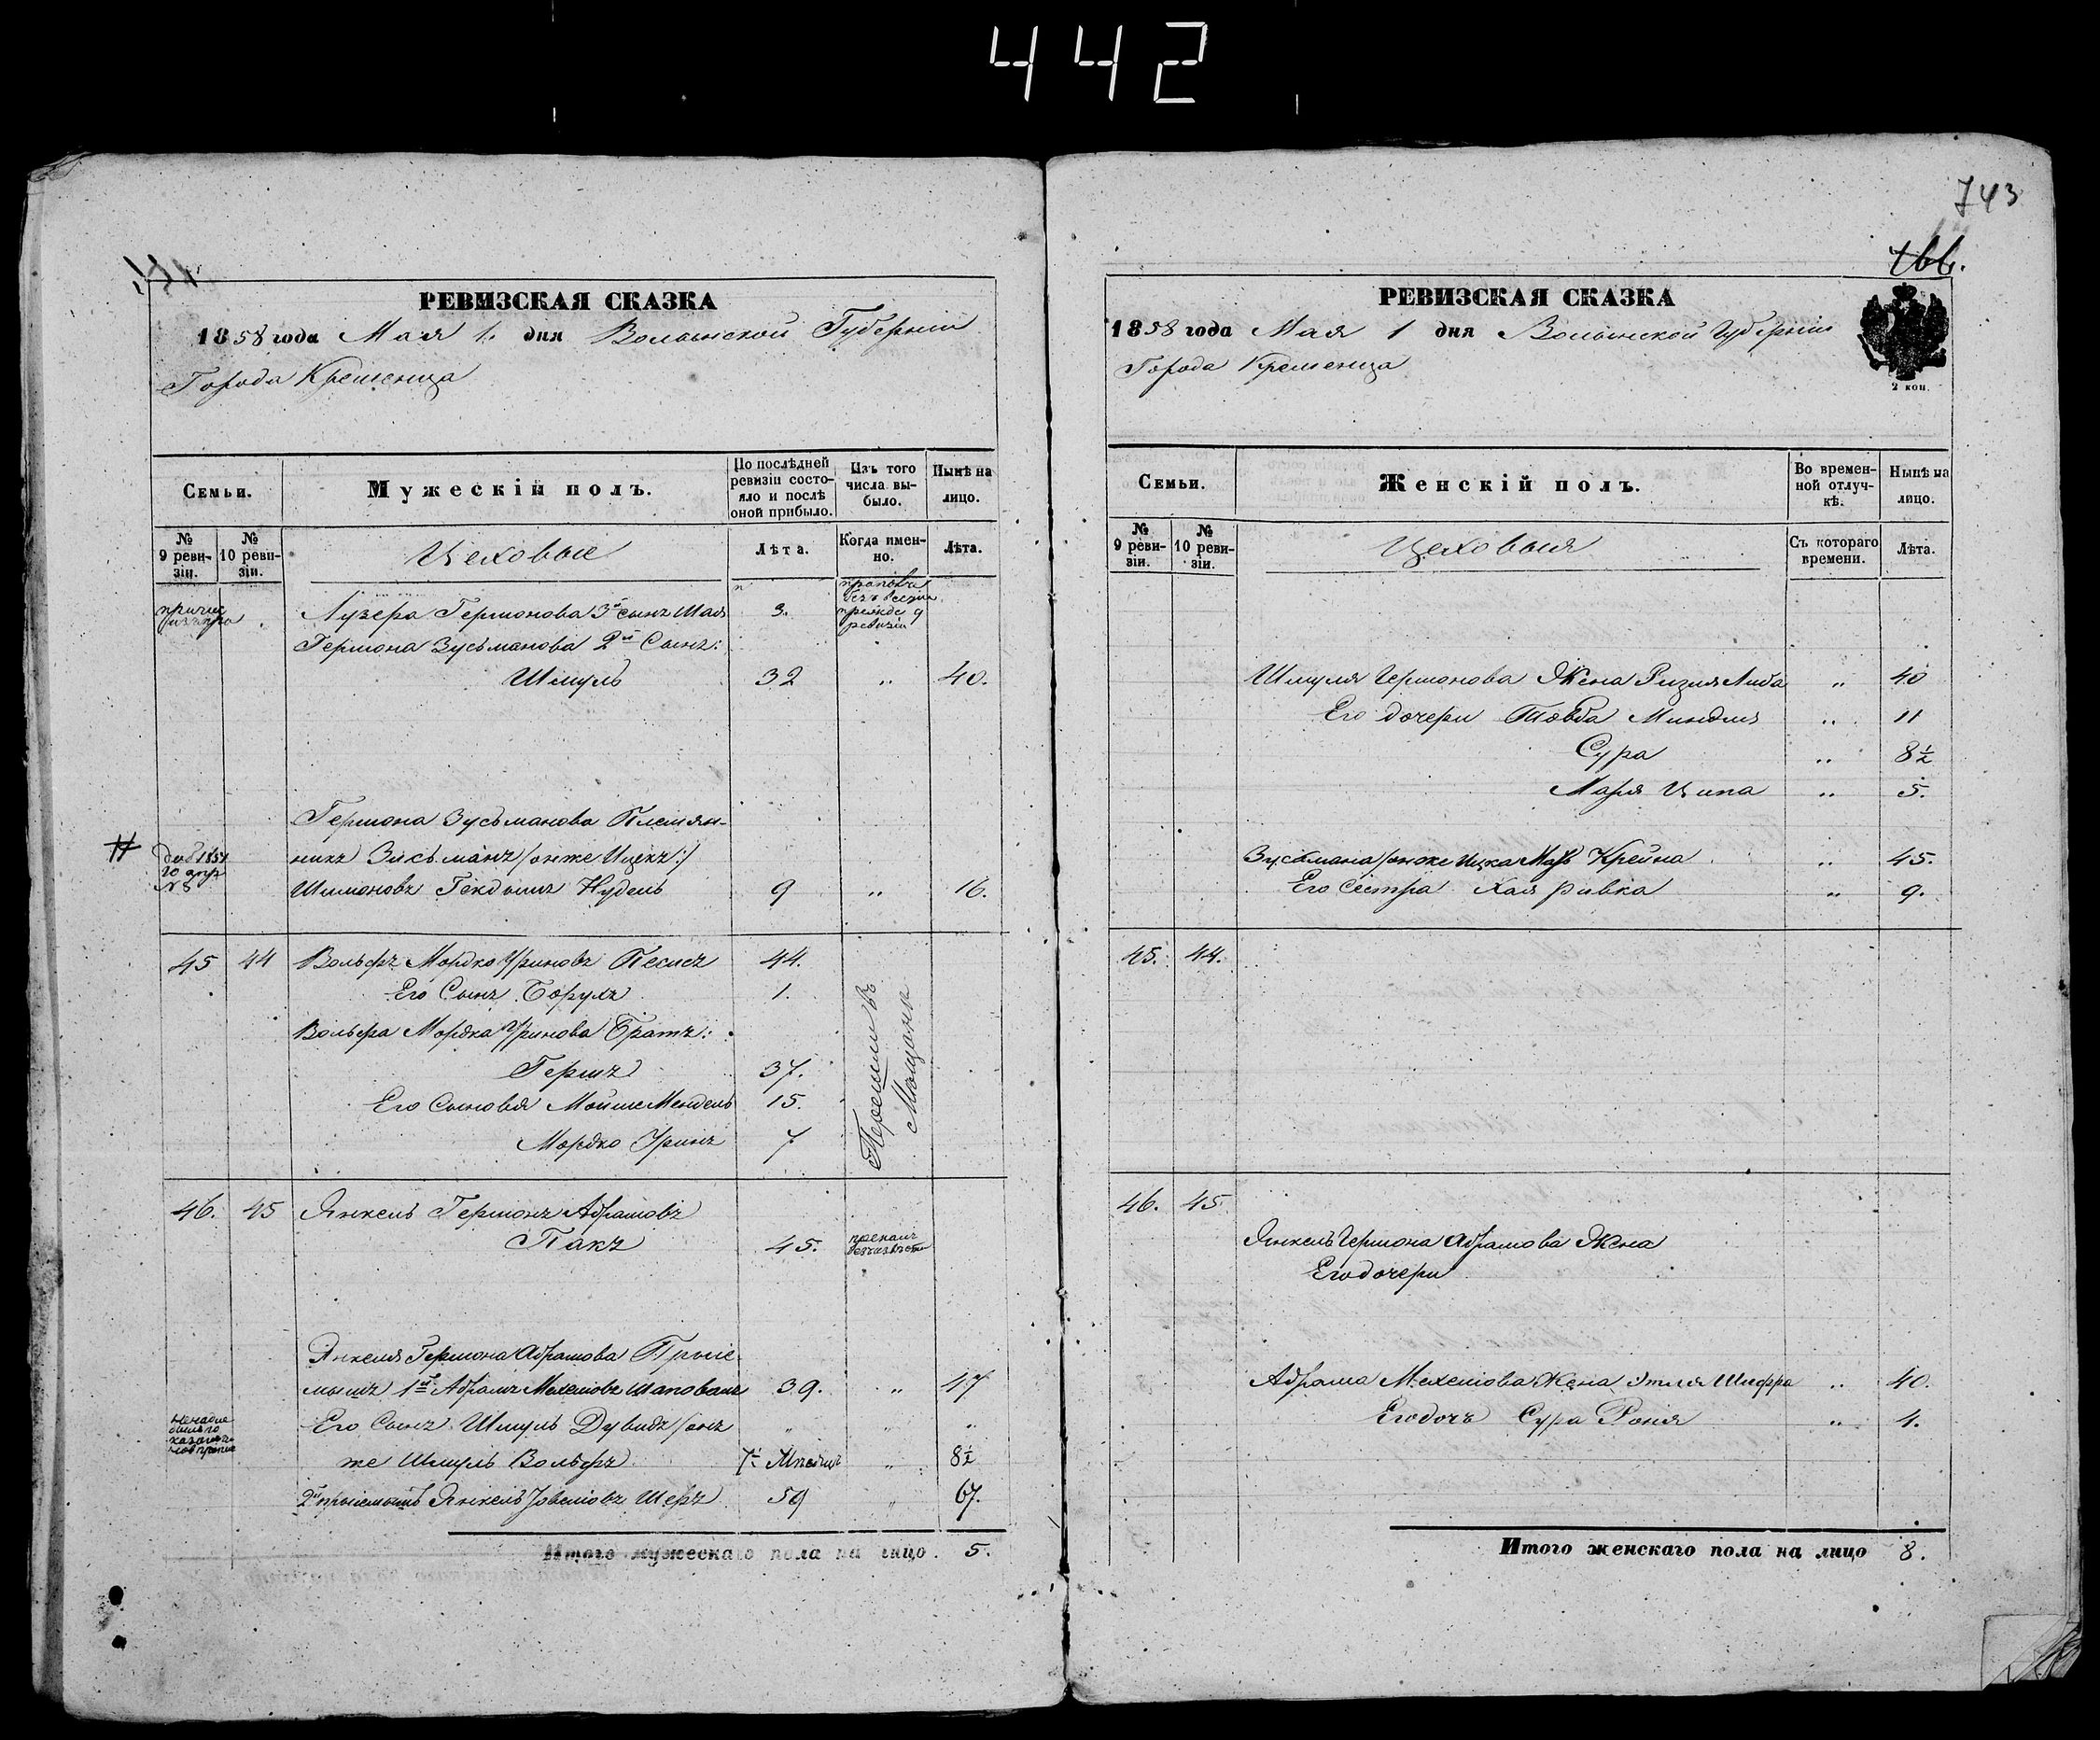 442
743
166.
РЕВИЗСКАЯ СКАЗКА
1858 года Мая 1. дня Волынской Губерніи
Города Кременца
Семьи.
Мужескій полъ.
По послѣдней ревизіи состояло и послѣ оной прибыло.
Изъ того числа выбыло.
Нынѣ на лицо.
№ 9 ревизіи.
№ 10 ревизіи.
Цеховые
Лѣта.
Когда именно.
Лѣта.
Лузера Гершонова 3й сынъ Шая 3. безъ вести прежде 9 ревизіи
Гершона Зусьманова 2й Сынъ:
Шмуль 32 " 40.
Гершона Зусьманова Племян-
никъ Зисьманъ /онже Ицекъ:/
Шимоновъ Нудель 9 " 16.
45 44 Вольфъ Мордко Уриновъ Песисъ 44.
Его Сынъ Борухъ 1.
Вольфа Мордка Уринова Братъ:
Гершъ 37.
Его Сыновья Мойше Мендель 15.
Мордко Уринъ 7
Перешли въ Мющане
46. 45 Янкель Гершонъ Абрамовъ
Пакъ 45.
Янкеля Гершона Абрамова Прые-
мышъ 1й Абрамъ Мехелювъ Шаповалъ 39. " 47
Его Сынъ Шмуль Дувидъ /онъ " "
же Шмуль Вольфъ 7½ " 8½
2й прыемышъ Янкель Шеръ 59 " 67.
Итого мужескаго пола на лицо. 5.
РЕВИЗСКАЯ СКАЗКА
1858 года Мая 1 дня Волынской Губерніи
Города Кременца
2 коп.
Семьи.
Женскій полъ.
Во временной отлучкѣ.
Нынѣ на лицо.
№ 9 ревизіи.
№ 10 ревизіи.
Цеховыя
Съ котораго времени.
Лѣта.
Шмуля Гершонова Жена Ризия Либа " 40
Его дочери Товба Миндля " 11
Сура " 8½
Марья Ципа " 5.
Зусьмана /онже Ицка Мать Крейна " 45.
Его сестра Хая Ривка " 9.
45. 44.
46. 45
Янкель Гершона Абрамова Жена
Его дочери
Абрама Мехелюва Жена Этля Шифра " 40.
Его дочь Сура Рония " 1.
Итого женскаго пола на лицо 8.